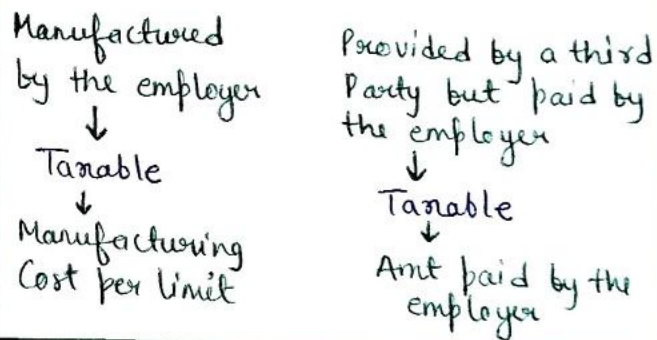 Manufactured
by the employer
↓
Taxable
↓
Manufacturing
Cost per limit
Provided by a third
Party but paid by
the employer
↓
Taxable
↓
Amt paid by the
employer